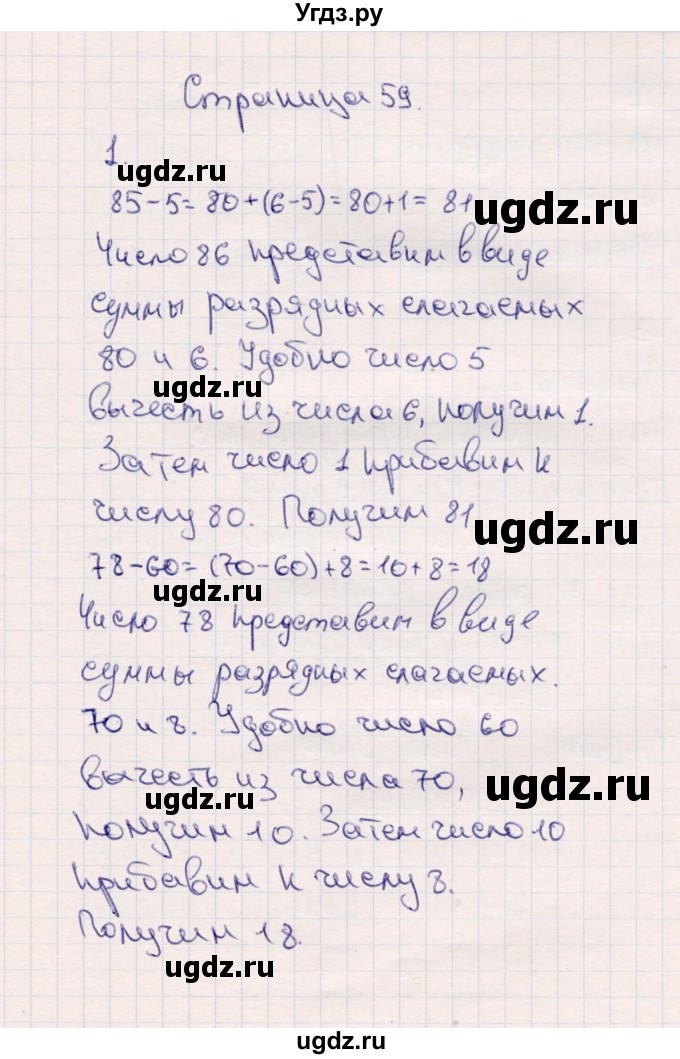 Угдз.ру
Страница 59.
1.
ugdz.ru
85-5= 80+(6-5)=80+1= 81
ugdz.ru
Число 86 представим в виде
суммы разрядных слагаемых
80 и 6. Удобно число 5
ugdz.ru
вычесть из числа 6, получим 1.
Затем число 1 прибавим к
числу 80. Получим 81
ugdz.ru
78-60= (70-60)+8=10+8=18
ugdz.ru
Число 78 представим в виде
суммы разрядных слагаемых.
70 и 8. Удобно число 60
вычесть из числа 70,
ugdz.ru
ugdz.ru
получим 10. Затем число 10
прибавим к числу 8.
Получим 18.
ugdz.ru
ugdz.ru